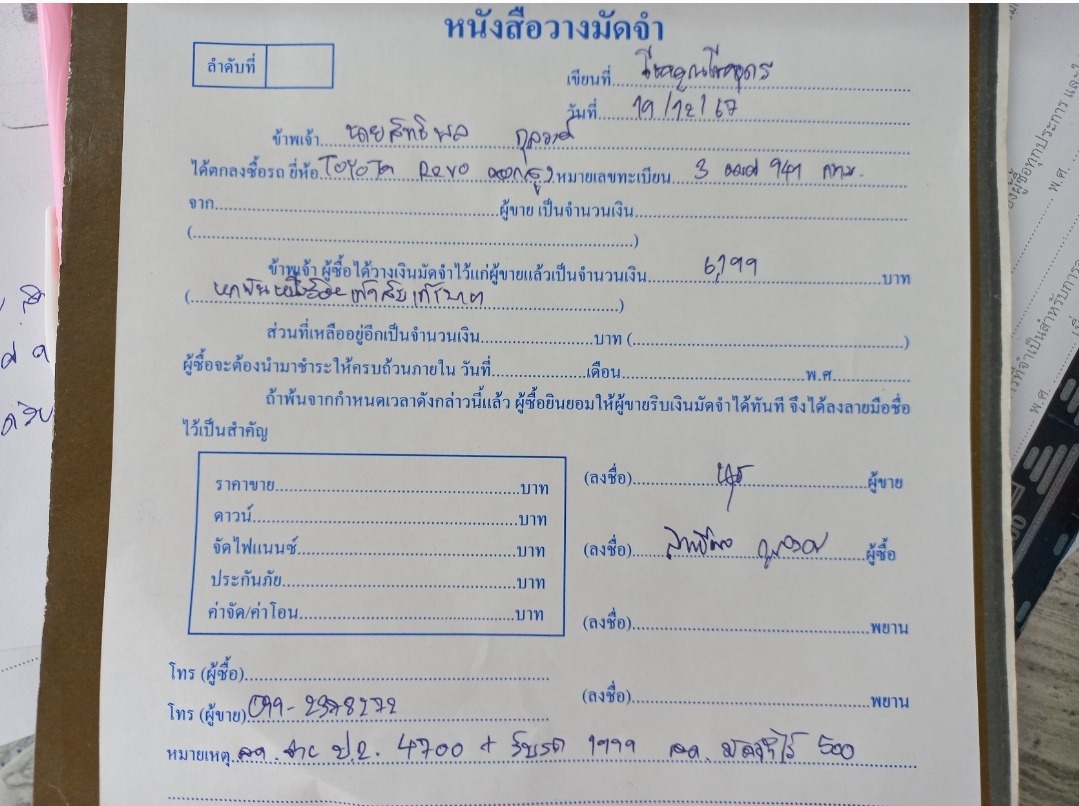 หนังสือวางมัดจำ
ลำดับที่
เขียนที่
วันที่ 19/12/67
ข้าพเจ้า นายสิทธิพล
ได้ตกลงซื้อรถ ยี่ห้อ TOYOTA Revo หมายเลขทะเบียน 3 941 กทม.
จาก ผู้ขาย เป็นจำนวนเงิน
( )
ข้าพเจ้า ผู้ซื้อได้วางเงินมัดจำไว้แก่ผู้ขายแล้วเป็นจำนวนเงิน 6,199 บาท
(หกพันหนึ่งร้อยเก้าสิบเก้าบาท)
ส่วนที่เหลืออยู่อีกเป็นจำนวนเงิน บาท ( )
ผู้ซื้อจะต้องนำมาชำระให้ครบถ้วนภายใน วันที่ เดือน พ.ศ.
ถ้าพ้นจากกำหนดเวลาดังกล่าวนี้แล้ว ผู้ซื้อยินยอมให้ผู้ขายริบเงินมัดจำได้ทันที จึงได้ลงลายมือชื่อ
ไว้เป็นสำคัญ
ราคาขาย บาท
ดาวน์ บาท
จัดไฟแนนซ์ บาท
ประกันภัย บาท
ค่าจัด/ค่าโอน บาท
(ลงชื่อ) ผู้ขาย
(ลงชื่อ) ผู้ซื้อ
(ลงชื่อ) พยาน
(ลงชื่อ) พยาน
โทร (ผู้ซื้อ)
โทร (ผู้ขาย) 099-2378272
หมายเหตุ ป.2. 4700 + รับรถ 1999 มัดจำไว้ 500